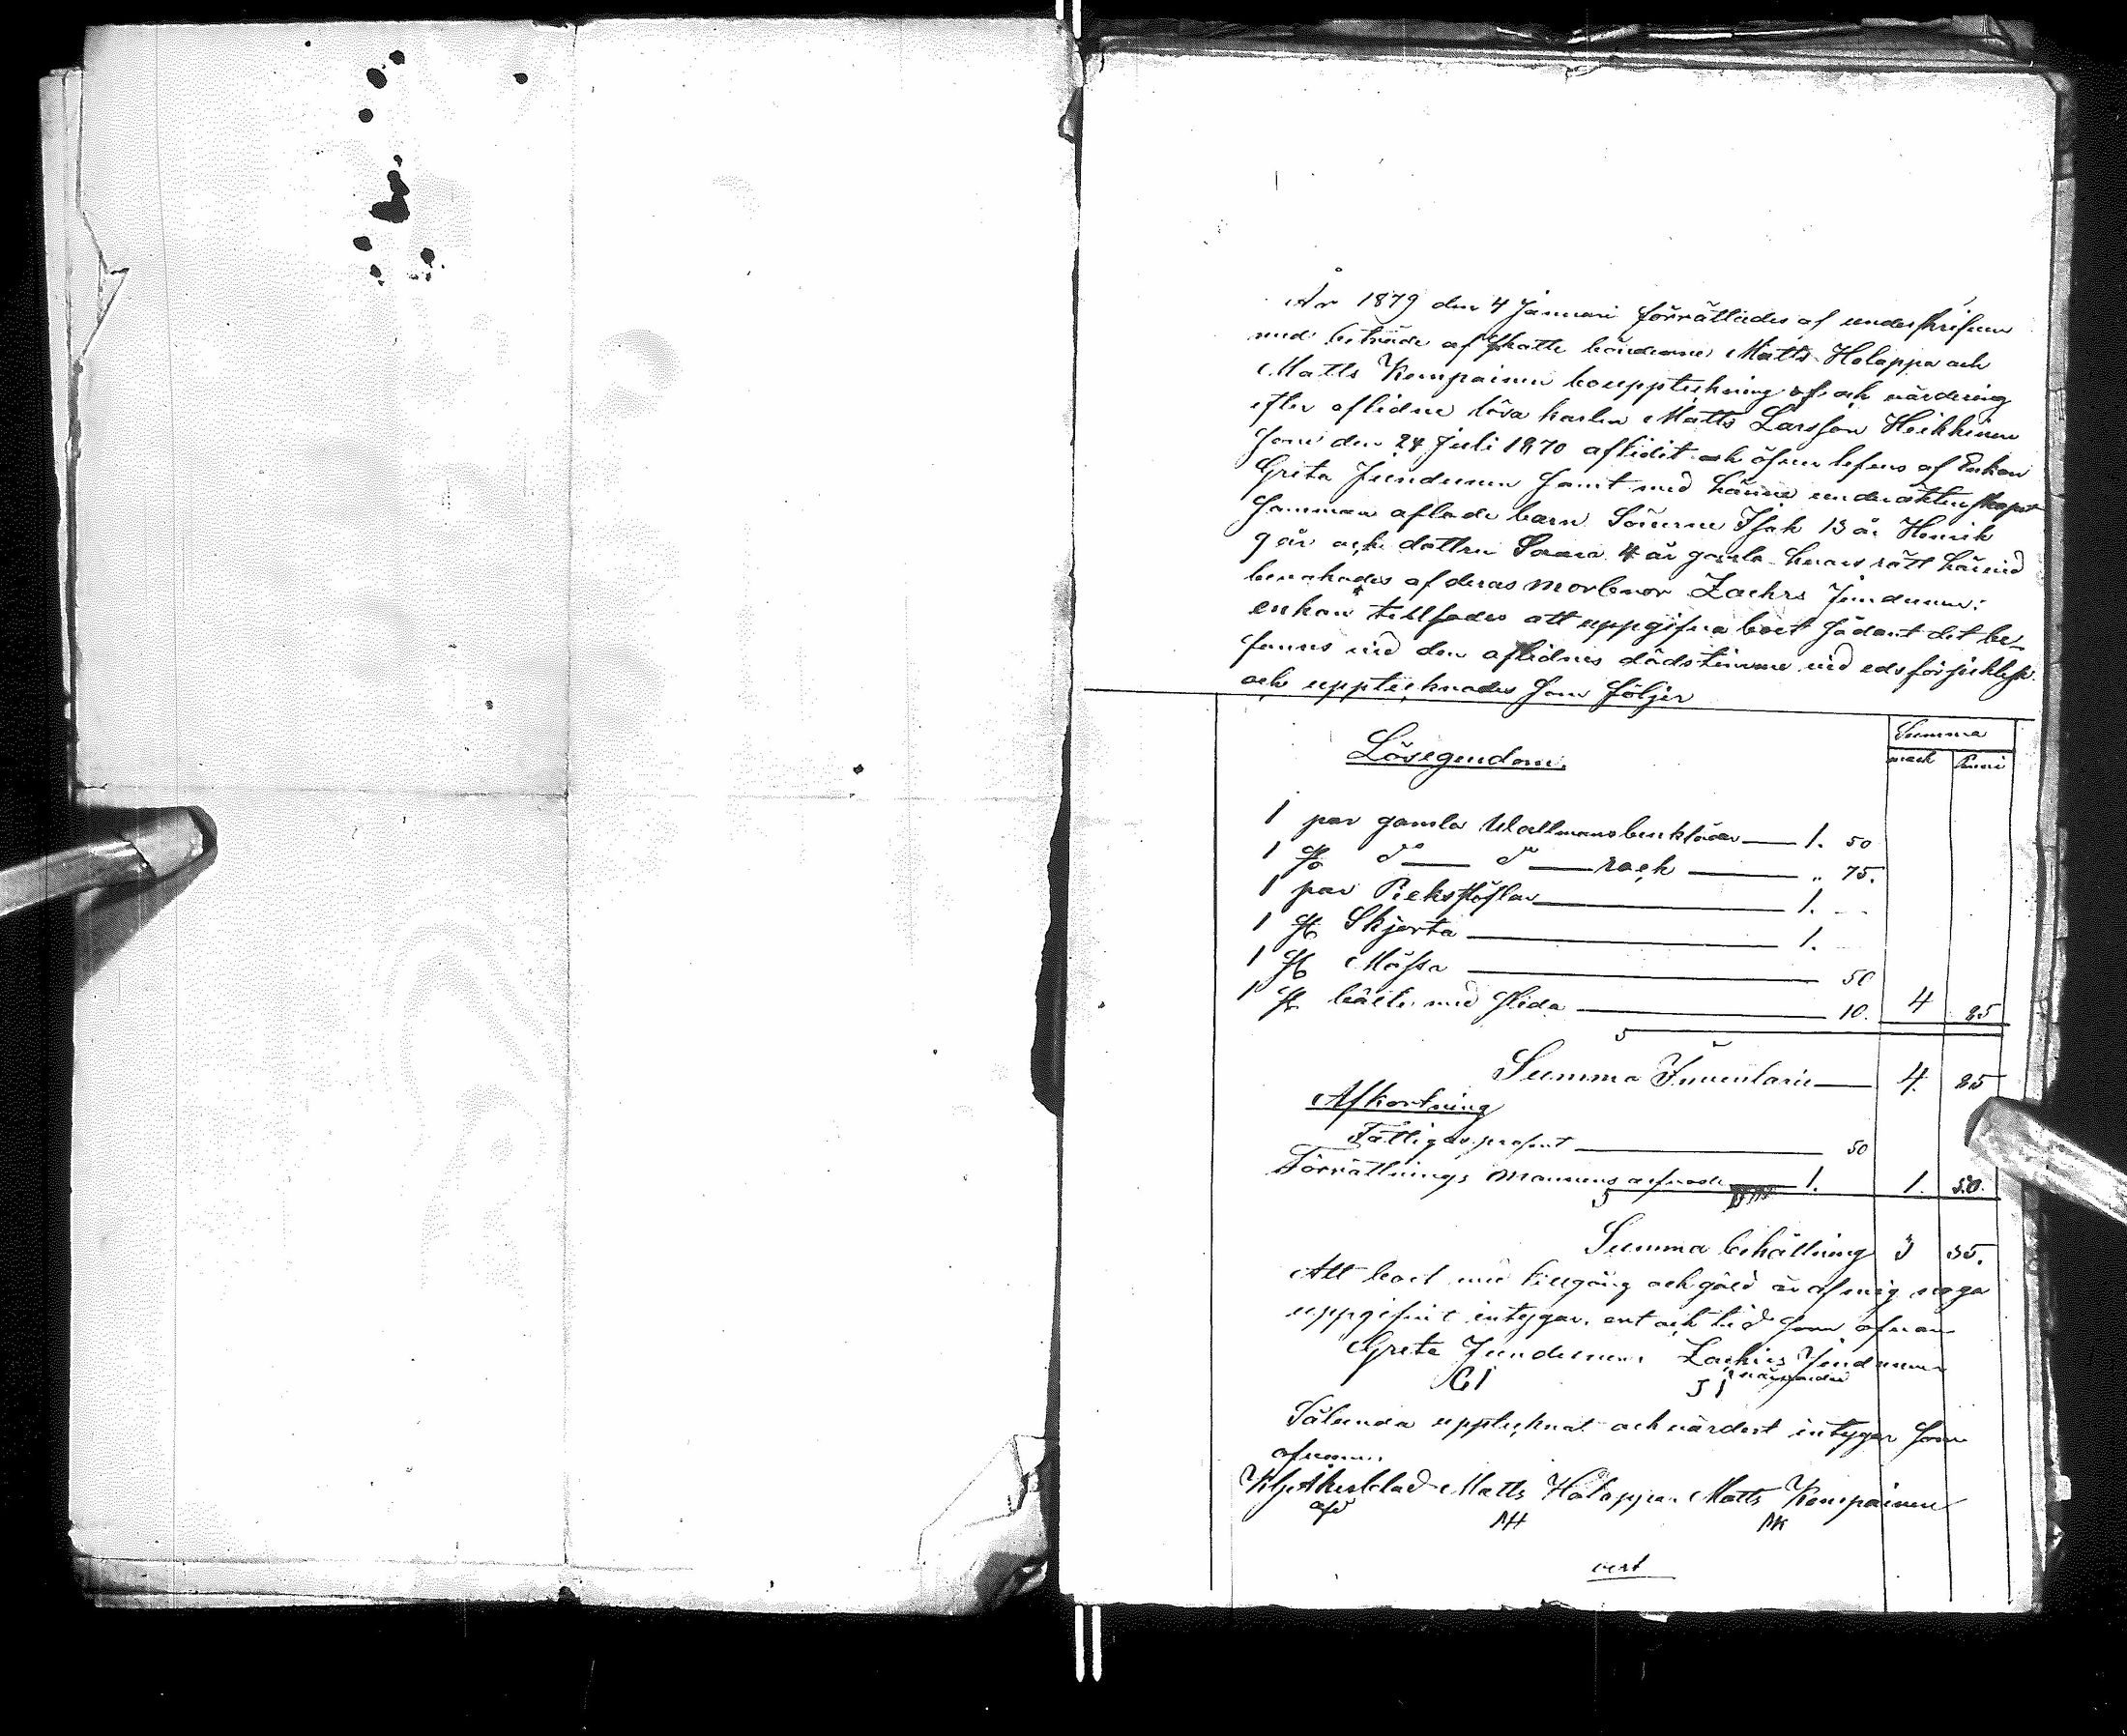 År 1879 den 4 Januari förrättades af underskrifven
med biträde af skatte bönderne Matts Holappa och
Matts Kempainen bouppteckning af och värdering
efter aflidne lösa karlen Matts Larsson Heikkinen
som den 24 Juli 1870 aflidit och öfverlefves af Enkan
Greta Jundunen samt med hänne under äktenskapet
sammanaflade barn Sönerne Isak 13 år Henrik
9 år och dottren Saara 4 år gamla hvars rätt härvid
bevakades af deras morbror Zachris Jundunen:
enkan tillsades att uppgifva boet sådant det be-
fanns vid den aflidnes dödstimme vid edsförpliktelse
och upptecknades som följer
Summa
Lösegendom.
mark Penni
1 par gamla Wallmansbenkläder 1. 50
1 st d:o d:o rock " 75.
1 par Pieksstöflar 1. --
1 st Skjorta 1. --
1 st Mössa 50
1 st bälte med slida 10. 4 85
S
Summa Inventarie 4. 85
Afkortning
Fattigas procent 50
Förrättnings mannens arfvode 1. 1. 50.
S
Summa behållning 3 35.
Att boet med tillgång och gäld är af mig noga
uppgifvit intygar, ort och tid som ofvan
Greta Jundunen Zachris Jundunen
GJ närvarande
Sålunda upptecknat och värdert intygar som
ofvan.
Åkerblad Matts Holappa Matts Kempainen
MH MK
vert